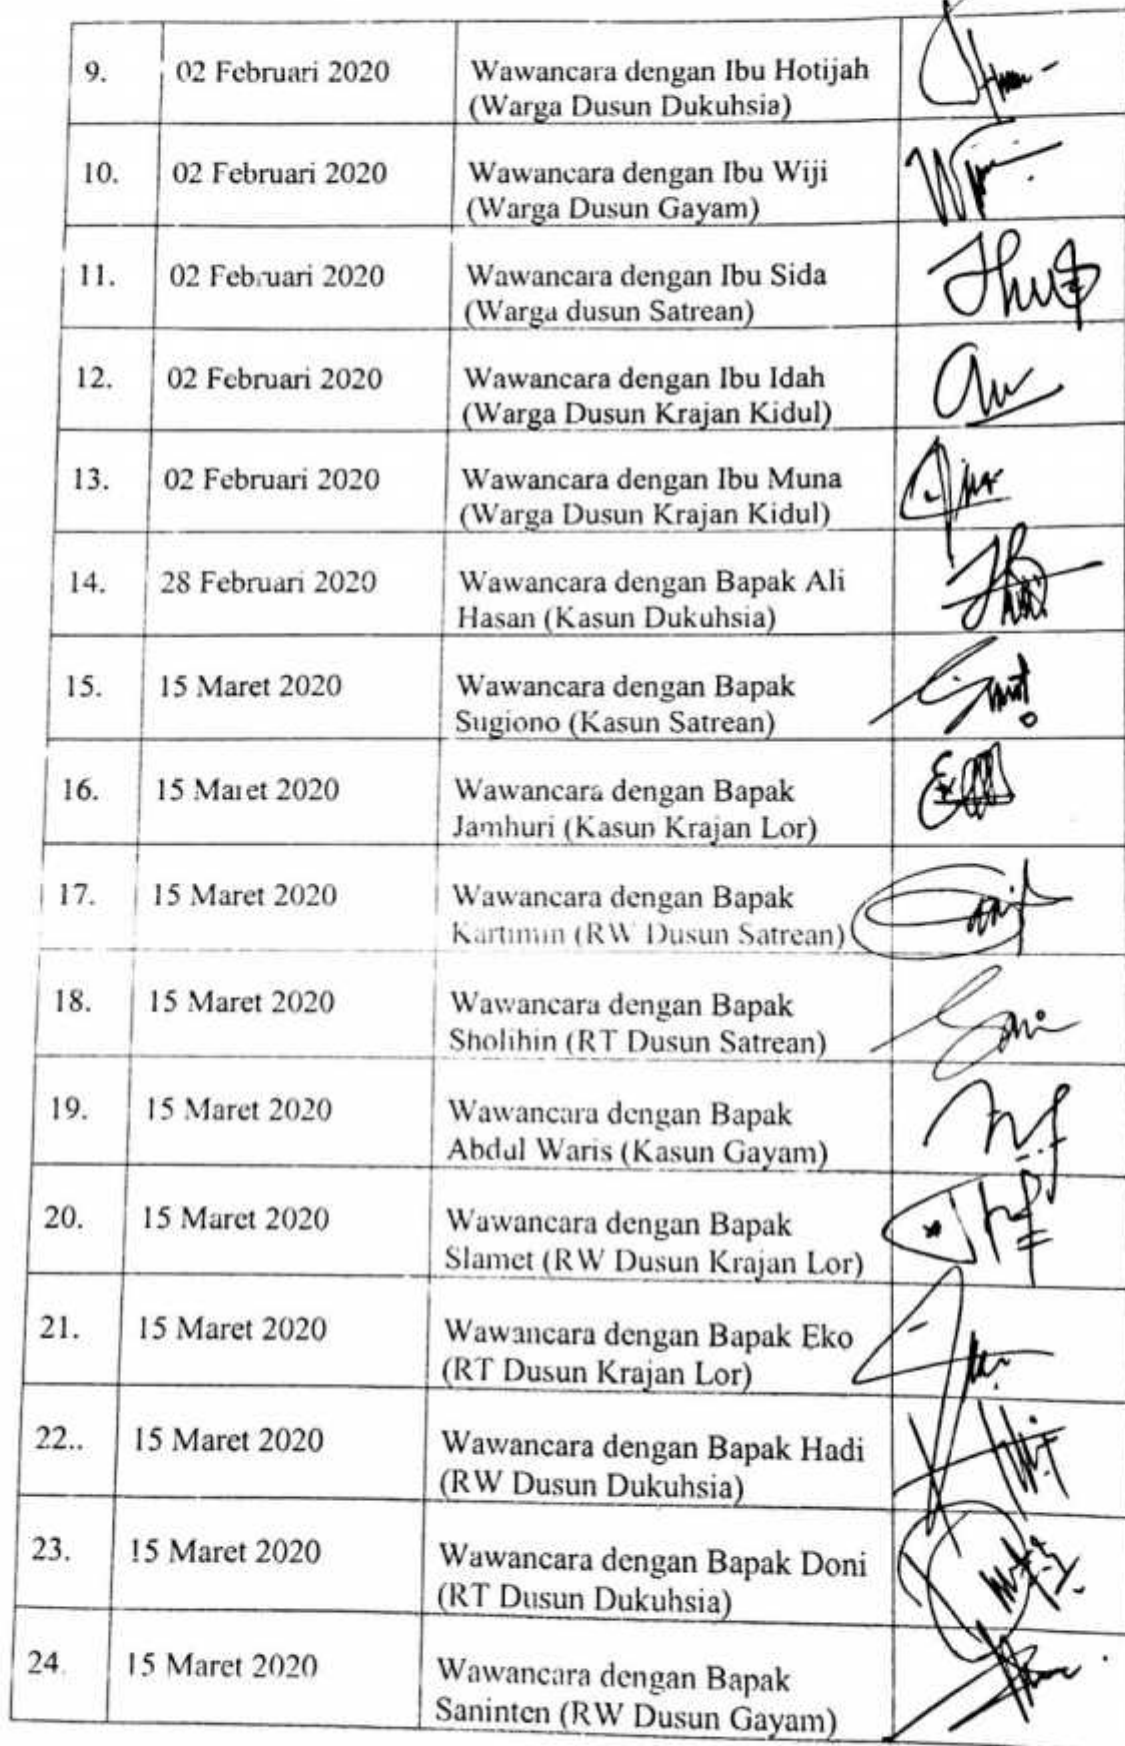 9. 02 Februari 2020 Wawancara dengan Ibu Hotijah
(Warga Dusun Dukuhsia)
10. 02 Februari 2020 Wawancara dengan Ibu Wiji
(Warga Dusun Gayam)
11. 02 Februari 2020 Wawancara dengan Ibu Sida
(Warga dusun Satrean)
12. 02 Februari 2020 Wawancara dengan Ibu Idah
(Warga Dusun Krajan Kidul)
13. 02 Februari 2020 Wawancara dengan Ibu Muna
(Warga Dusun Krajan Kidul)
14. 28 Februari 2020 Wawancara dengan Bapak Ali
Hasan (Kasun Dukuhsia)
15. 15 Maret 2020 Wawancara dengan Bapak
Sugiono (Kasun Satrean)
16. 15 Maret 2020 Wawancara dengan Bapak
Jamhuri (Kasun Krajan Lor)
17. 15 Maret 2020 Wawancara dengan Bapak
Kartimin (RW Dusun Satrean)
18. 15 Maret 2020 Wawancara dengan Bapak
Sholihin (RT Dusun Satrean)
19. 15 Maret 2020 Wawancara dengan Bapak
Abdul Waris (Kasun Gayam)
20. 15 Maret 2020 Wawancara dengan Bapak
Slamet (RW Dusun Krajan Lor)
21. 15 Maret 2020 Wawancara dengan Bapak Eko
(RT Dusun Krajan Lor)
22.. 15 Maret 2020 Wawancara dengan Bapak Hadi
(RW Dusun Dukuhsia)
23. 15 Maret 2020 Wawancara dengan Bapak Doni
(RT Dusun Dukuhsia)
24. 15 Maret 2020 Wawancara dengan Bapak
Saninten (RW Dusun Gayam)